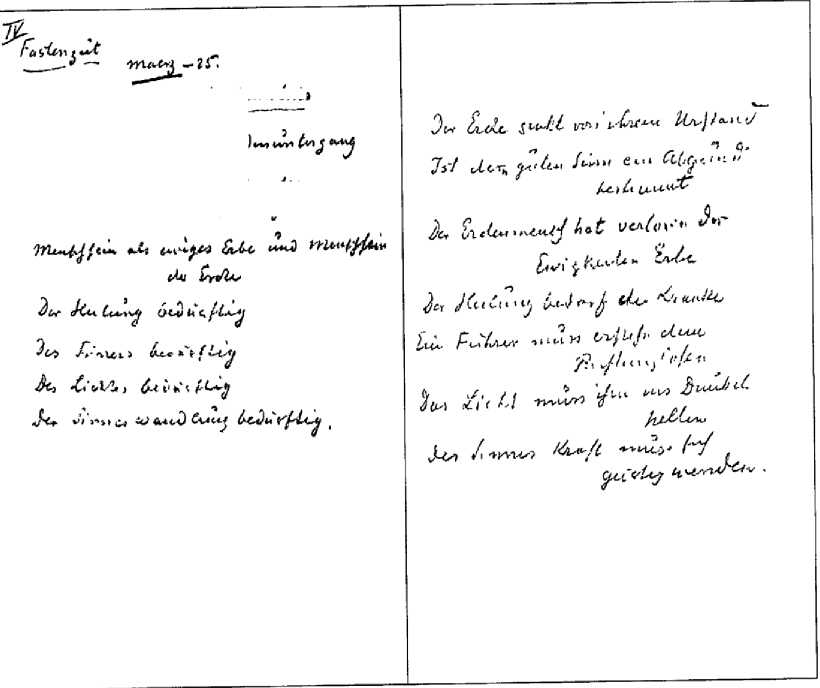 IV
Fastenzeit
Maerz – 25.
untergang
Menschsein als ewiges Erbe und Menschsein
der Erde
Der Heilung bedürftig
Des bedürftig
Des Lichtes bedürftig
Der Sinneswandlung bedürftig.
Der Erde sinkt Urstand
Ist dem guten Sinn ein Abgrund
bestimmt
Der Erdenmensch hat verloren der
Ewigkeiten Erbe
Der Heilung bedarf der Kranke
Ein Führer muss erstehn dem
Das Licht muss ihm ins Dunkel
hellen
Des Sinnes Kraft muss sich
geistig wenden.